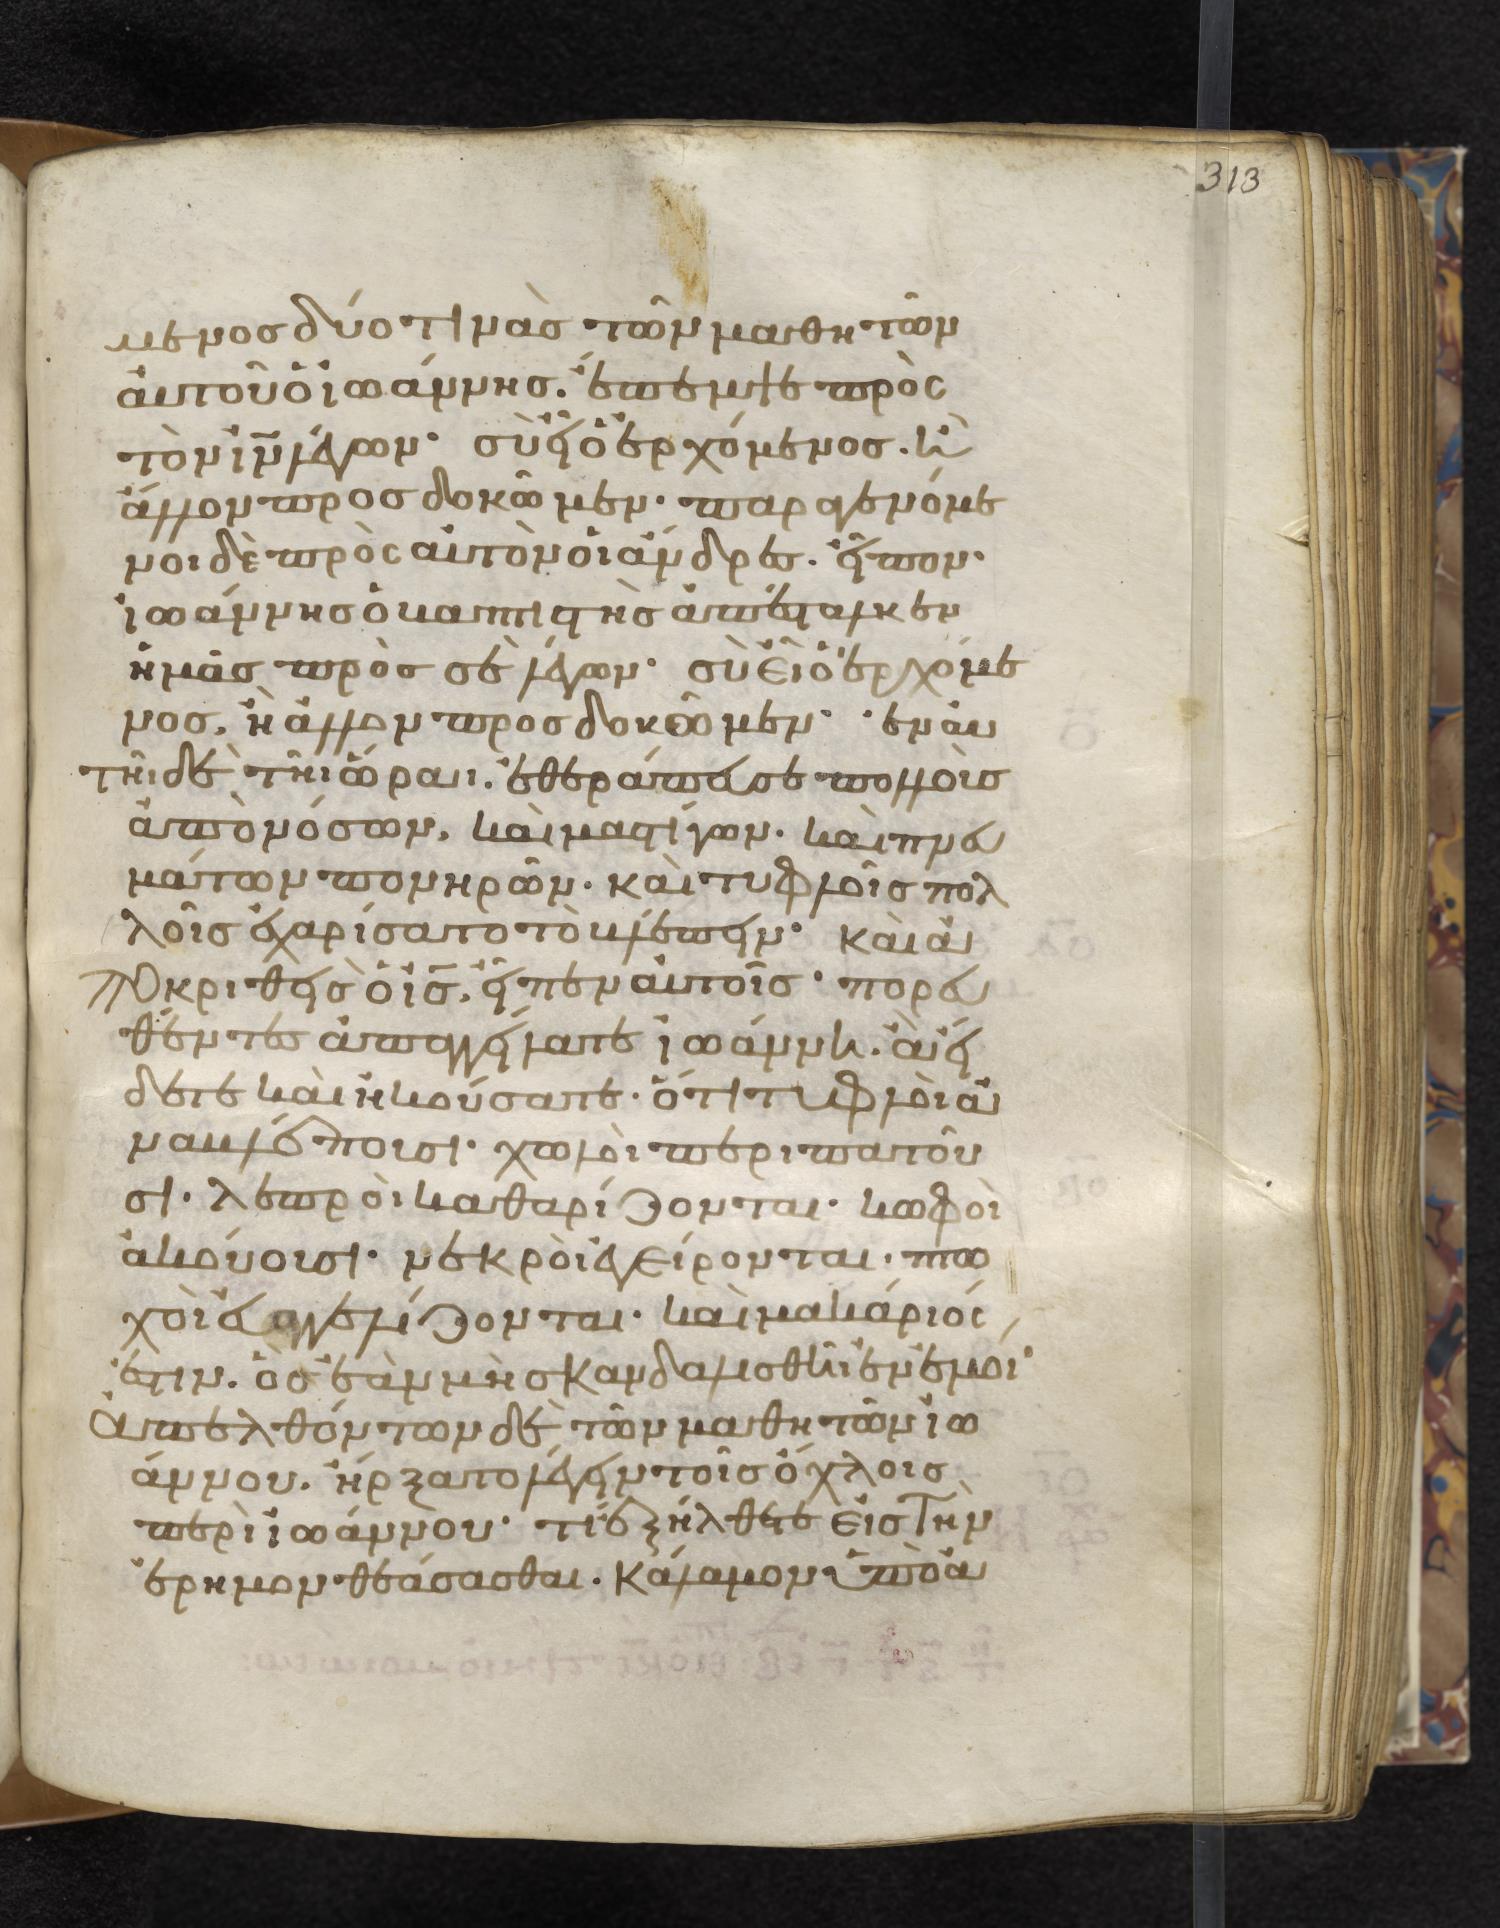 313
μενος δύο τινὰς τῶν μαθητῶν
αὐτοῦ ὁ ἰωάννης. ἔπεμψε πρὸς
τὸν ἰν̅ λέγων· σὺ εἶ ὁ ἐρχόμενος. ἢ
ἄλλον προσδοκῶμεν· παραγενόμε
νοι δὲ πρὸς αὐτὸν οἱ ἄνδρες. εἶπον·
ἰωάννης ὁ βαπτιστὴς ἀπέσταλκεν
ἡμᾶς πρὸς σὲ λέγων· σὺ εἶ ὁ ἐρχόμε
νος, ἢ ἄλλον προσδοκῶμεν· ἐν αὐ
τῆι δὲ τῆι ὥραι. ἐθεράπευσε πολλοὺς
ἀπὸ νόσων, καὶ μαστίγων. καὶ πνευ
μάτων πονηρῶν. καὶ τυφλοῖς πολ
λοῖς ἐχαρίσατο τὸ βλέπειν· καὶ ἀ
ποκριθεὶς ὁ ις̅, εἶπεν αὐτοῖς· πορευ
θέντες ἀπαγγείλατε ἰωάννη. ἃ εἴ
δετε καὶ ἠκούσατε. ὅτι τυφλοὶ ἀ
ναβλέπουσι· χωλοὶ περιπατοῦ
σι. λεπροὶ καθαρίζονται· κωφοὶ
ἀκούουσι· νεκροὶ ἐγείρονται. πτω
χοὶ εὐαγγελίζονται. καὶ μακάριός
ἐστιν. ὃς ἐὰν μὴ σκανδαλισθῆι ἐν ἐμοί·
Ἀπελθόντων δὲ τῶν μαθητῶν ἰω
άννου. ἤρξατο λέγειν τοῖς ὄχλοις
περὶ ἰωάννου· τί ἐξήλθετε εἰς τὴν
ἔρημον θεάσασθαι. κάλαμον ὑπὸ ἀ